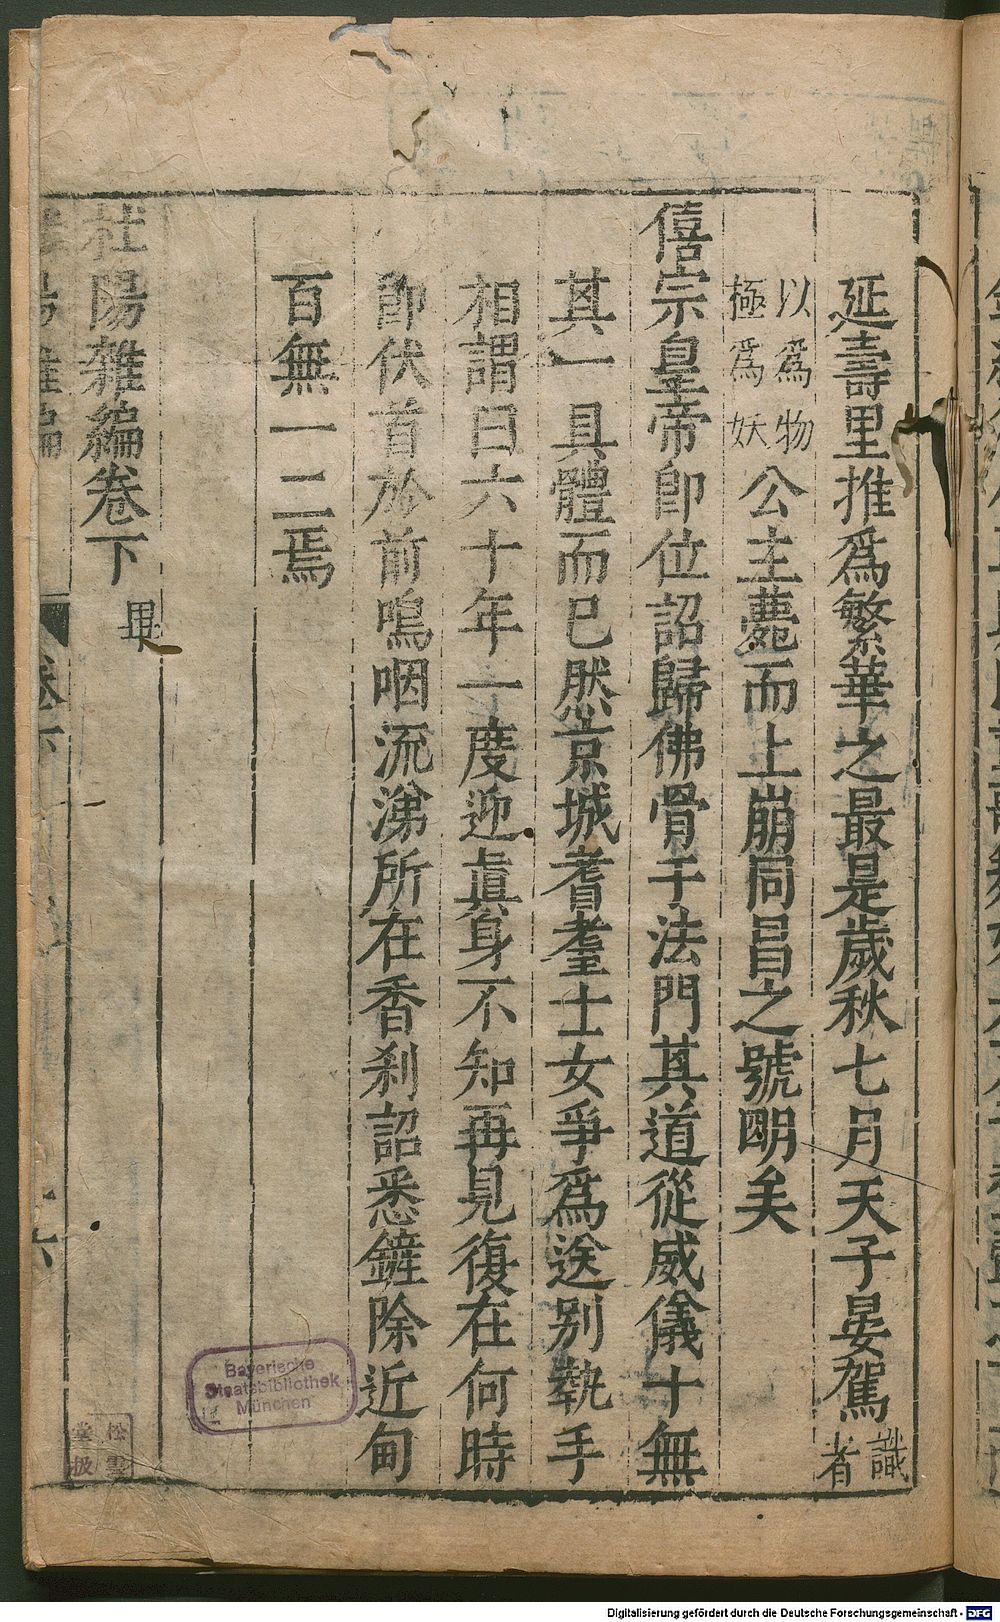 延壽里推爲繁華之最是歲秋七月天子晏駕識者
以爲物極爲妖公主薨而上崩同昌之號明矣
僖宗皇帝卽位詔歸佛骨于法門其道從威儀十無
其一具體而已然京城耆耋士女爭爲送別執手
相謂曰六十年一度迎眞身不知再見復在何時
卽伏首於前嗚咽流涕所在香刹詔悉鏟除近甸
百無一二焉
杜陽雜編卷下 畢
Bayerische
Staatsbibliothek
München
松雲
堂
Digitalisierung gefördert durch die Deutsche Forschungsgemeinschaft - DFG